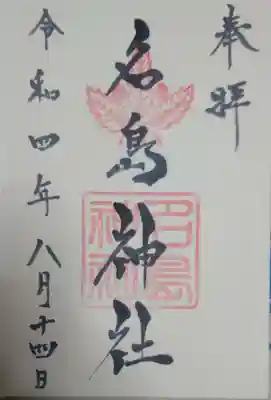 奉拝
名島神社
名島神社
令和四年八月十四日